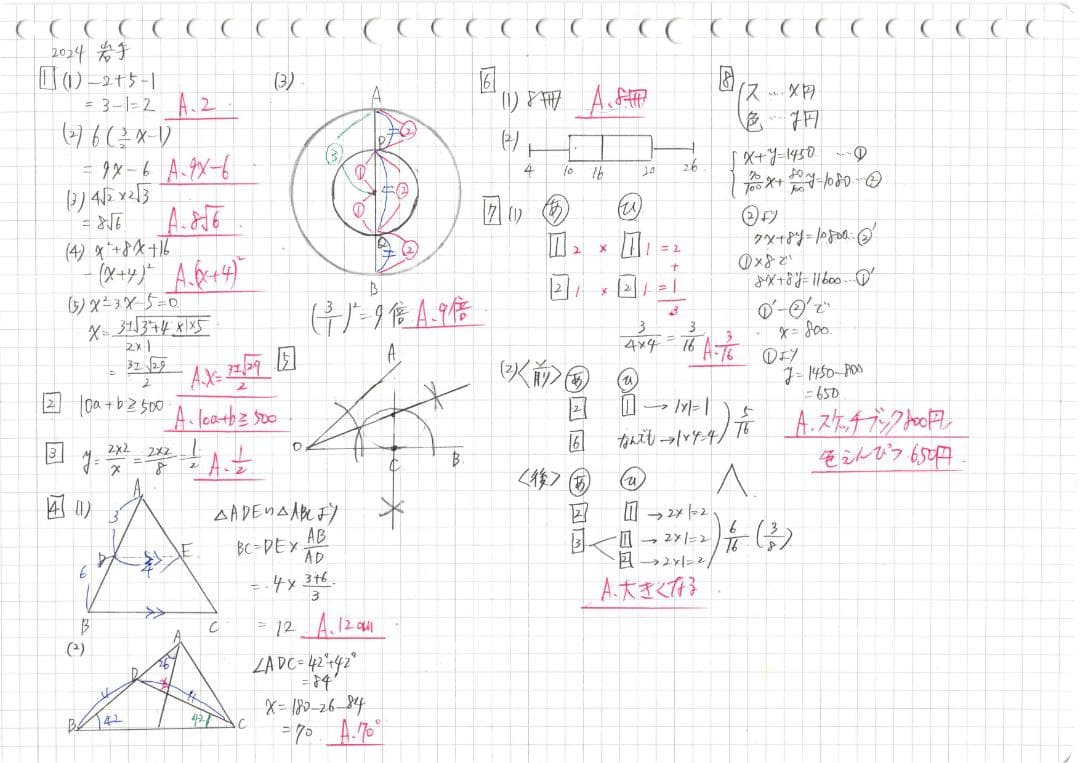 2024 岩手
1 (1) -2+5-1
= 3-1=2 A.2
(2) 6(3/2x-1)
= 9x-6 A.9x-6
(3) 4√2×2√3
= 8√6 A.8√6
(4) x²+8x+16
-(x+4)² A.(x+4)²
(5) x²-3x-5=0
x= 3±√3²+4×1×5 / 2×1
= 3±√29 / 2 A.x= 3±√29 / 2
2 10a+b≧500
A.10a+b≧500
3 y= 2×2/x = 2×2/8 = 1/2 A.1/2
4 (1)
A
3
D 4 E
6
B C
△ADE∽△ABCより
BC=DE× AB/AD
= 4× 3+6/3
= 12 A.12cm
(2)
A
26
D
x
B 42 42 C
∠ADC=42°+42°
=84
x=180-26-84
=70 A.70°
(3)
A
②
P
③
① ②
①
Q
②
B
(3/1)²=9倍 A.9倍
5
A
O C B
6
(1) 8冊 A.8冊
(2)
4 10 16 20 26
7 (1) あ い
1 2 × 1 1=2
+
2 1 × 2 1=1
3
3/4×4 = 3/16 A.3/16
(2)<前> あ い
2 1 →1×1=1
6 なんでも →1×4=4 5/16
<後> あ い
2 1 →2×1=2
3 1 →2×1=2 6/16 (3/8)
2 →2×1=2
A.大きくなる
8 ス…x円
色…y円
x+y=1450 …①
70/100x+80/100y=1080…②
②より
7x+8y=10800…②'
①×8で
8x+8y=11600…①'
①'-②'で
x=800
①より
y=1450-800
=650
A.スケッチブック800円
色えんぴつ650円